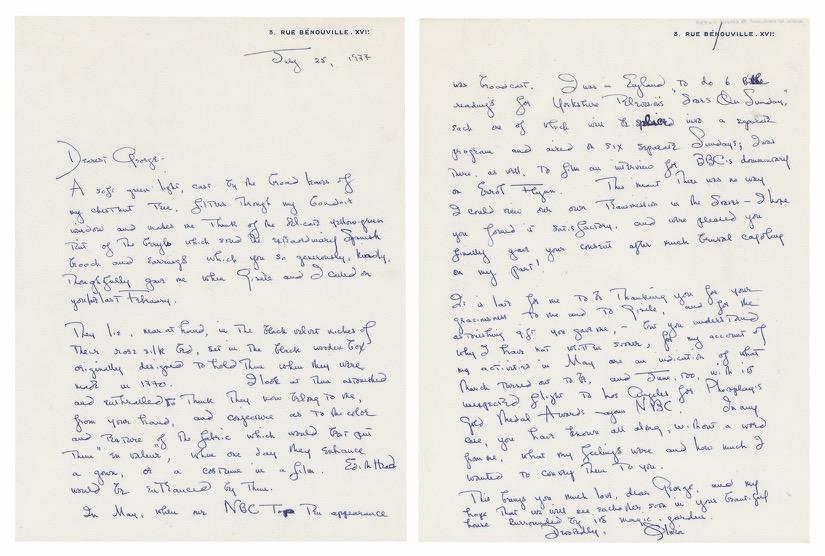 3. RUE BÉNOUVILLE. XVIE
July 25, 1977
Dearest George -
A soft green light, cast by the broad leaves of
my chestnut tree, filters through my boudoir
window and makes me think of the delicate yellow-green
tint of the beryls which stud the extraordinary Spanish
brooch and earrings which you so generously, kindly,
thoughtfully gave me when Gisele and I called on
you last February.
They lie, near at hand, in the black velvet niches of
their rose silk bed, set in the black wooden box
originally designed to hold them when they were
made in 1770. I look at them astonished
and enthralled to think they now belong to me,
from your hand, and conjecture as to the color
and texture of the fabric which would best put
them "en valeur", when one day they enhance
a gown, or a costume in a film. Edith Head
would be entranced by them.
In May, when our NBC Tom appearance
3. RUE BÉNOUVILLE. XVIE
was broadcast, I was in England to do 6 Bible
readings for Yorkshire Television's "Stars On Sunday,"
each one of which will be spliced into a separate
program and aired on six separate Sundays; I was
there, as well, to film an interview for BBC's documentary
on Errol Flynn. This meant there was no way
I could view our own transmission in the States - I hope
you found it satisfactory, and were pleased you
finally gave your consent after much brutal cajoling
on my part!
It is late for me to be thanking you for your
graciousness to me and to Gisele, and for the
astonishing gift you gave me, - but you understand
why I have not written sooner, for my account of
my activities in May are an indication of what
March turned out to be, and June, too, with its
unexpected flight to Los Angeles for Photoplay's
Gold Medal Awards - again NBC. In any
case, you have known all along, without a word
from me, what my feelings were and how much I
wanted to convey them to you.
This brings you much love, dear George, and my
hope that we will see each other soon in your beautiful
house surrounded by its magic garden.
Devotedly, Olivia